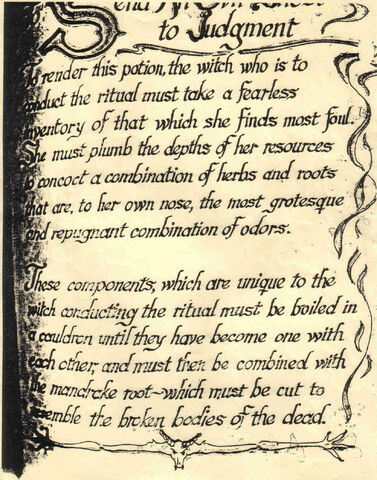 to Judgment
To render this potion, the witch who is to
conduct the ritual must take a fearless
inventory of that which she finds most foul.
She must plumb the depths of her resources
to concoct a combination of herbs and roots
that are, to her own nose, the most grotesque
and repugnant combination of odors.
These components, which are unique to the
witch conducting the ritual must be boiled in
a cauldron until they have become one with
each other, and must then be combined with
the mandrake root~which must be cut to
resemble the broken bodies of the dead.